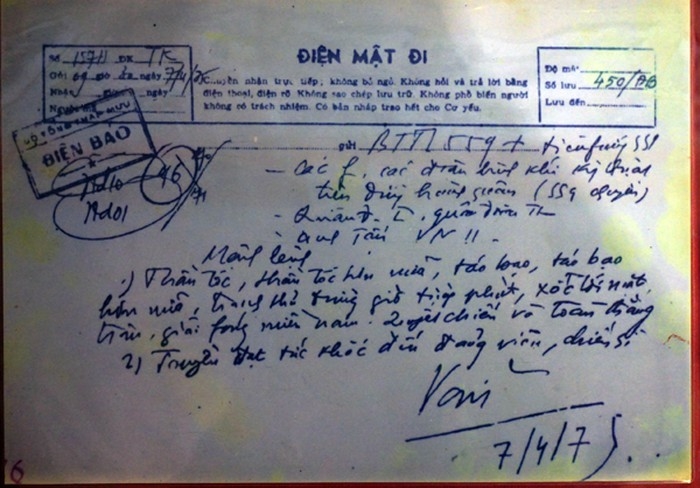 ĐIỆN MẬT ĐI
Số 157H ĐK TK
Gửi giờ ngày 7/4/75
Nhận giờ ngày
Người
Chuyển nhận trực tiếp; không bỏ ngỏ. Không hỏi và trả lời bằng
điện thoại, điện rõ. Không sao chép lưu trữ. Không phổ biến người
không có trách nhiệm. Có bản nháp trao hết cho Cơ yếu.
Độ mật
Số lưu 450/ĐB
Lưu đến
BỘ TỔNG THAM MƯU
ĐIỆN BÁO
46
gửi BTTL 559 + tiền phương 559
- Các f, các đơn binh khí kỹ thuật
trên đường hành quân (559 chuyển)
- Quân đ. I, quân đoàn
- Đ/c Tấn
Mệnh lệnh
1) Thần tốc, thần tốc hơn nữa, táo bạo, táo bạo
hơn nữa, tranh thủ từng giờ từng phút, xốc tới mặt
trận, giải fóng miền nam. Quyết chiến và toàn thắng
2) Truyền đạt tức khắc đến đảng viên, chiến sĩ
Văn
7/4/75